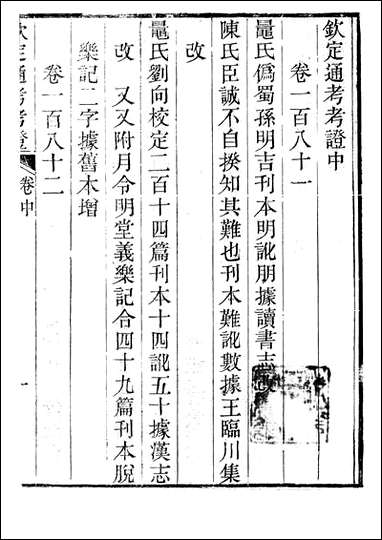 欽定通考考證中
卷一百八十一
鼂氏僞蜀孫明吉刊本明訛朋據讀書志改
陳氏臣誠不自揆知其難也刊本難訛數據王臨川集
改
鼂氏劉向校定二百十四篇刊本十四訛五十據漢志
改　又又附月令明堂義樂記合四十九篇刊本脫
樂記二字據舊本增
卷一百八十二
欽定通考考證
卷中
一